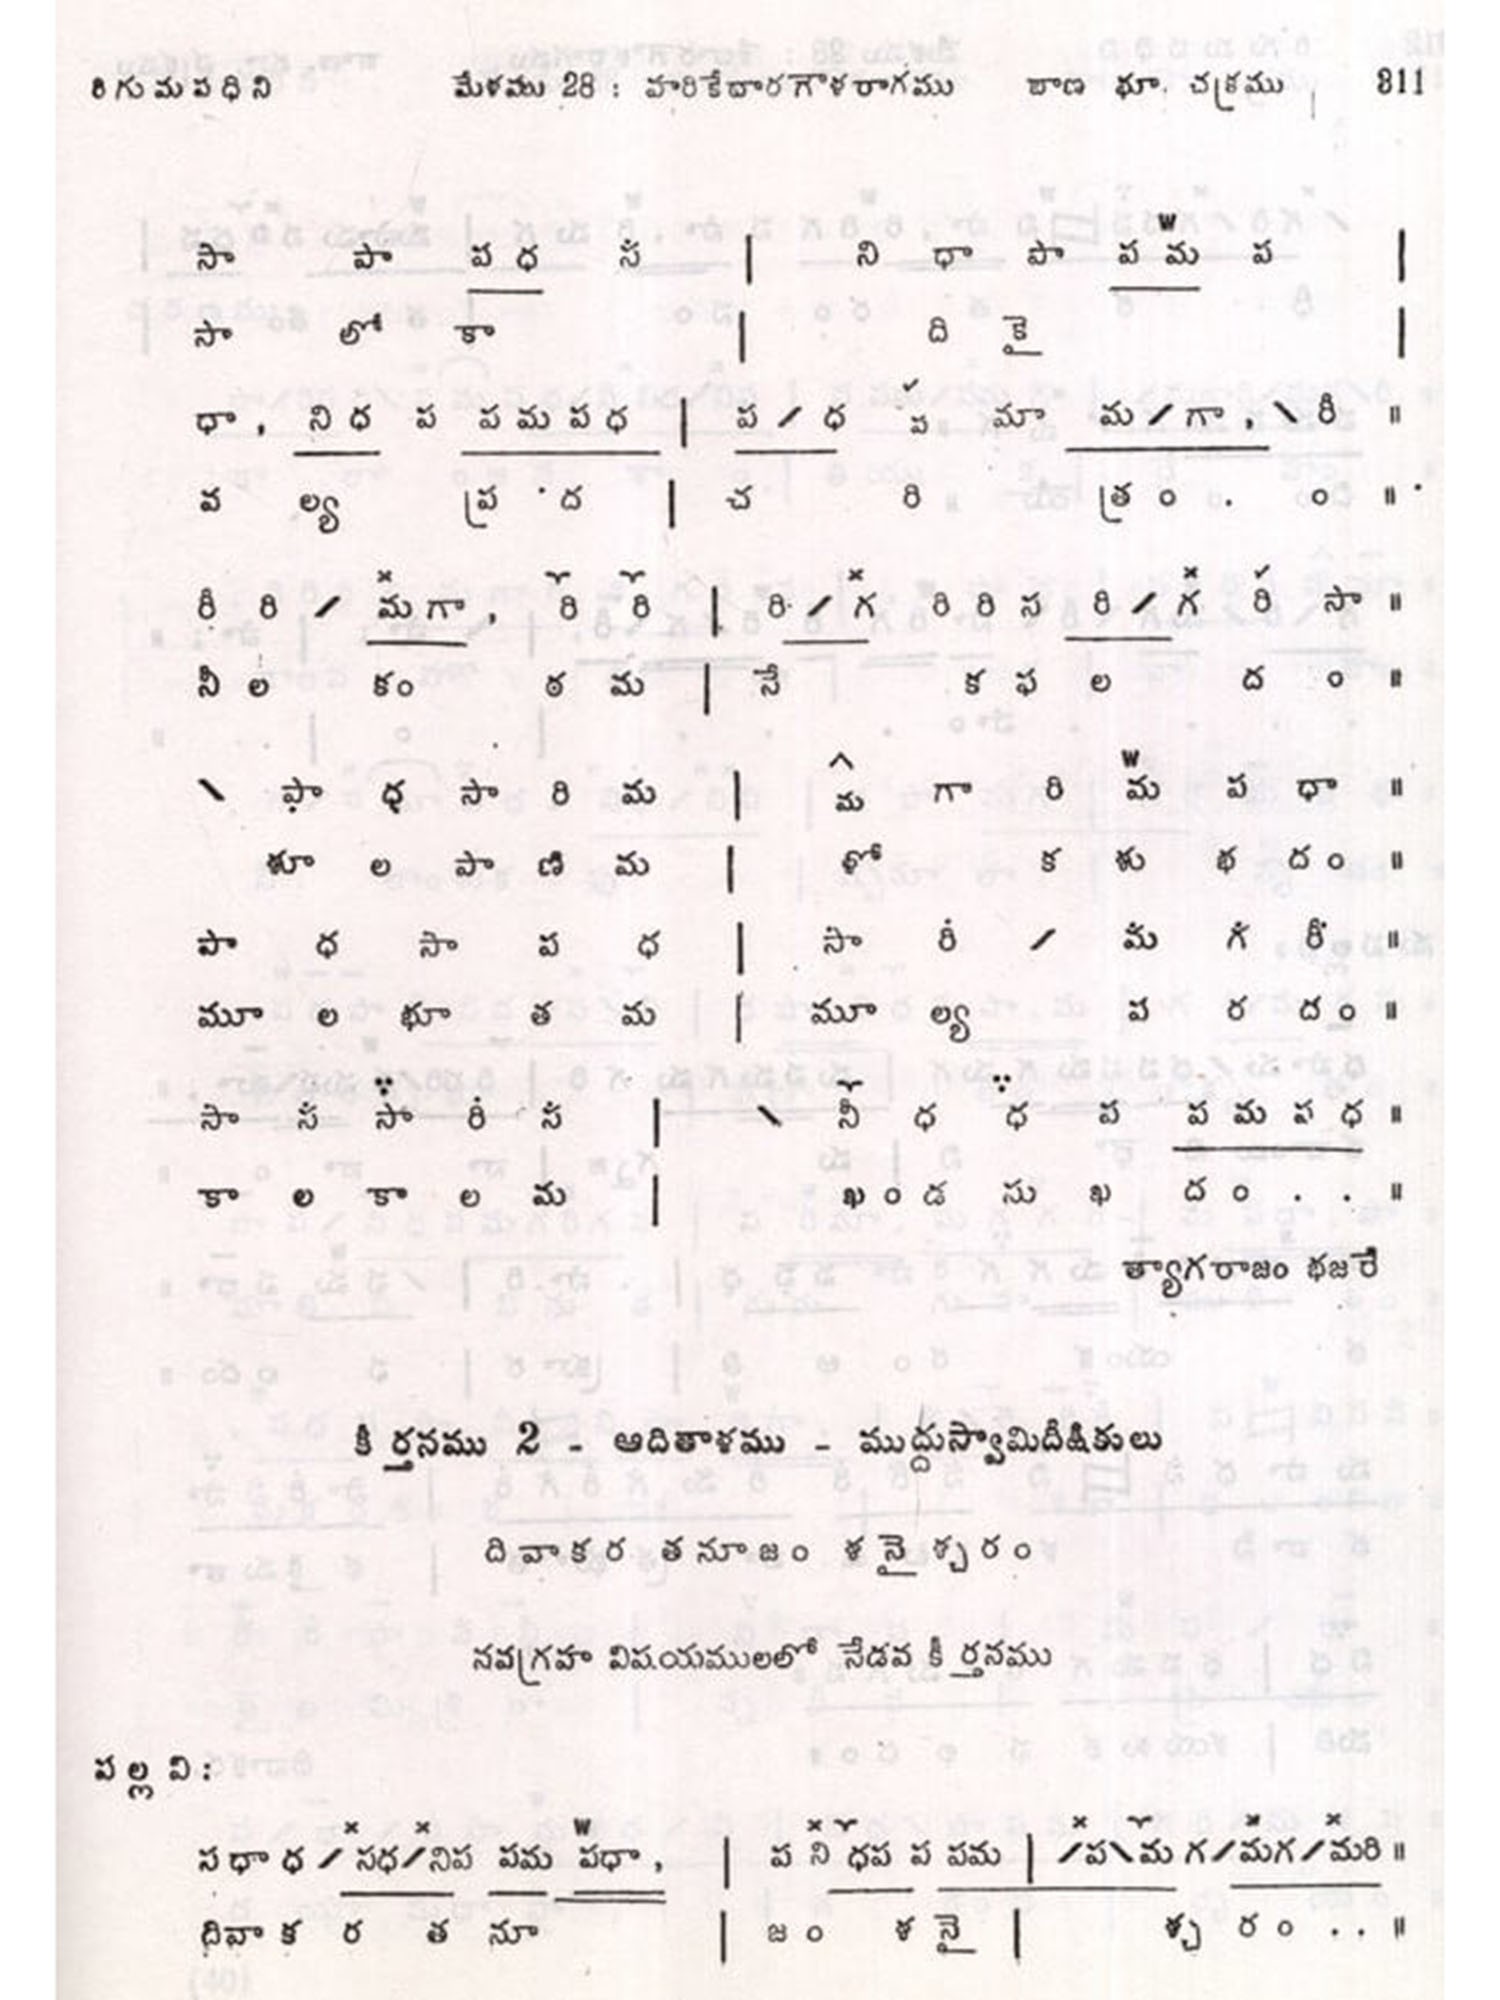 రిగుమపధిని మేళము 28 : హరికేదారగౌళరాగము బాణ భూ. చక్రము 311
సా పా ప ధ స | ని ధా పా ప మ ప |
సా లో కా | ది కై |
ధా , ని ధ ప ప మ ప ధ | ప / ధ ప మా మ / గా , \ రీ ॥
వ ల్య ప్ర ద | చ రి త్ర ం . ం ॥
రీ రి / మ గా , రి రి | రి / గ రి రి స రి / గ రి సా ॥
నీ ల కం ఠ మ | నే క ఫ ల ద ం ॥
\ పా ధ సా రి మ | మ గా రి మ ప ధా ॥
శూ ల పా ణి మ | శో క శు భ ద ం ॥
పా ధ సా ప ధ | సా రీ / మ గ రీ ॥
మూ ల భూ త మ | మూ ల్య ప ర ద ం ॥
సా స సా రి స | \ ని ధ ధ ప ప మ ప ధ ॥
కా ల కా ల మ | ఖ ం డ సు ఖ ద ం . . ॥
త్యాగరాజం భజరే
కీర్తనము 2 - ఆదితాళము - ముద్దుస్వామిదీక్షితులు
దివాకర తనూజం శనైశ్చరం
నవగ్రహ విషయములలో నేడవ కీర్తనము
పల్లవి :
స ధా ధ / సధ/నిప పమ పధా , | ప ని ధప ప పమ | /ప\మ గ/మగ/మరి ॥
దివా క ర త నూ | జ ం శ నై | శ్చ ర ం . . ॥